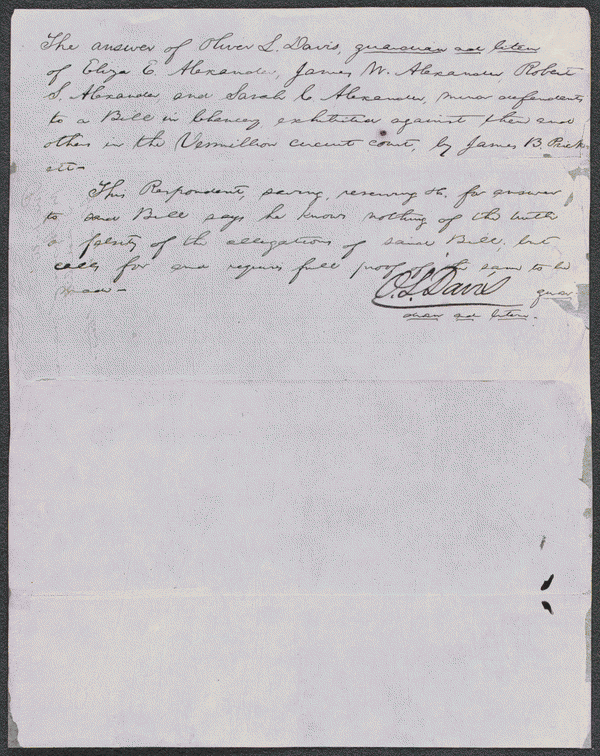 The answer of Oliver L. Davis, guardian ad litem
of Eliza E. Alexander, James W. Alexander Robert
S. Alexander, and Sarah C Alexander, minor defendents
to a Bill in Chancery exhibited against them and
others in the Vermillion circuit court, by James B. 
This Respondent, saving, reserving &c. for answer
to said Bill says he knows nothing of the truth
or falsity of the allegations of said Bill, but
calls for and requires full proof of the same to be
O. L. Davis guar
dian ad litem.